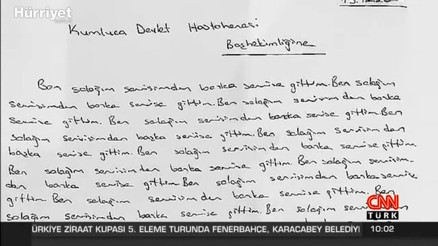 Hürriyet
Kumluca Devlet Hastahanesi
Başhekimliğine
Ben salağım servisimden başka servise gittim. Ben salağım
servisimden başka servise gittim. Ben salağım servisimden başka
servise gittim. Ben salağım servisimden başka servise gittim. Ben
salağım servisimden başka servise gittim. Ben salağım servisimden
başka servise gittim. Ben salağım servisimden başka servise gittim.
Ben salağım servisimden başka servise gittim. Ben salağım servisim-
den başka servise gittim. Ben salağım servisimden başka servise
gittim. Ben salağım servisimden başka servise gittim. Ben
salağım servisimden başka servise gittim. Ben salağım servisimden
CNN
TÜRK
ÜRKİYE ZİRAAT KUPASI 5. ELEME TURUNDA FENERBAHÇE, KARACABEY BELEDİYE 10:02